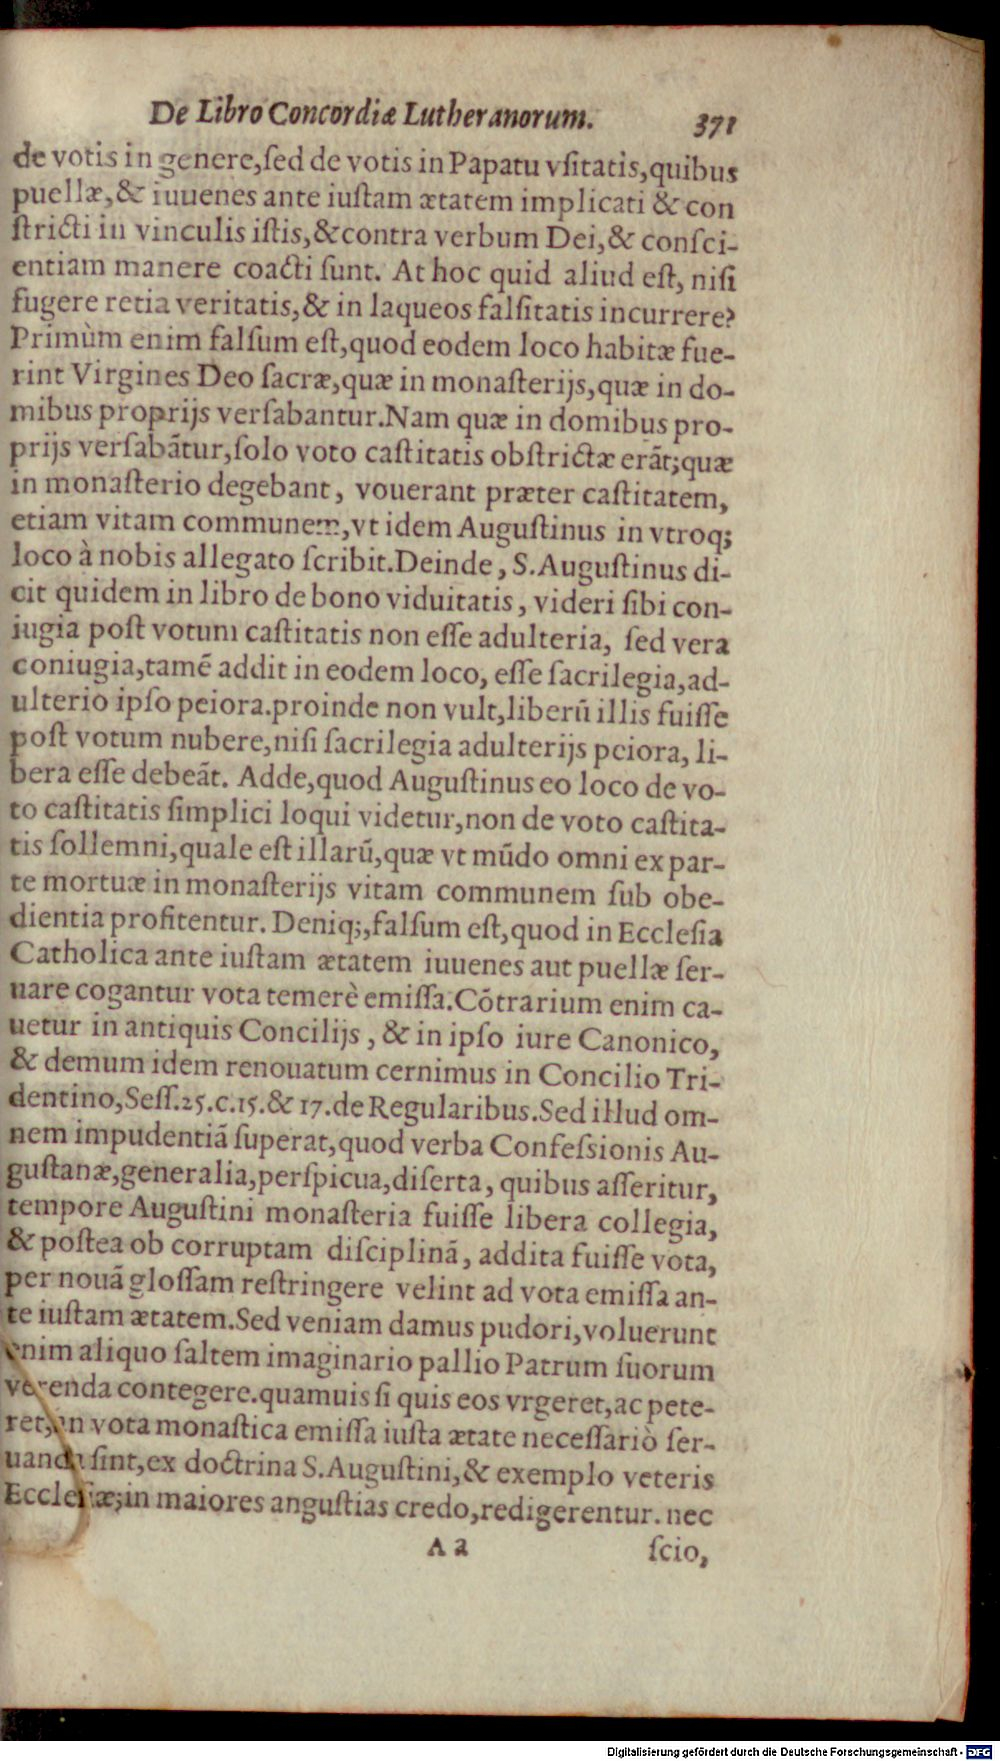 De Libro Concordiæ Lutheranorum. 371
de votis in genere,ſed de votis in Papatu vſitatis,quibus
puellæ,& iuuenes ante iuſtam ætatem implicati & con
ſtricti in vinculis iſtis,&contra verbum Dei,& conſci-
entiam manere coacti ſunt. At hoc quid aliud eſt, niſi
fugere retia veritatis,& in laqueos falſitatis incurrere?
Primùm enim falſum eſt,quod eodem loco habitæ fue-
rint Virgines Deo ſacræ,quæ in monaſterijs,quæ in do-
mibus proprijs verſabantur.Nam quæ in domibus pro-
prijs verſabãtur,ſolo voto caſtitatis obſtrictæ erãt;quæ
in monaſterio degebant, vouerant præter caſtitatem,
etiam vitam communem,vt idem Auguſtinus in vtroq;
loco à nobis allegato ſcribit.Deinde, S.Auguſtinus di-
cit quidem in libro de bono viduitatis, videri ſibi con-
iugia poſt votum caſtitatis non eſſe adulteria, ſed vera
coniugia,tamẽ addit in eodem loco, eſſe ſacrilegia,ad-
ulterio ipſo peiora.proinde non vult,liberũ illis fuiſſe
poſt votum nubere,niſi ſacrilegia adulterijs peiora, li-
bera eſſe debeãt. Adde,quod Auguſtinus eo loco de vo-
to caſtitatis ſimplici loqui videtur,non de voto caſtita-
tis ſollemni,quale eſt illarũ,quæ vt mũdo omni ex par-
te mortuæ in monaſterijs vitam communem ſub obe-
dientia profitentur. Deniq;,falſum eſt,quod in Eccleſia
Catholica ante iuſtam ætatem iuuenes aut puellæ ſer-
uare cogantur vota temerè emiſſa.Cõtrarium enim ca-
uetur in antiquis Concilijs, & in ipſo iure Canonico,
& demum idem renouatum cernimus in Concilio Tri-
dentino,Seſſ.25.c.15.& 17.de Regularibus.Sed illud om-
nem impudentiã ſuperat,quod verba Confeſsionis Au-
guſtanæ,generalia,perſpicua,diſerta, quibus aſſeritur,
tempore Auguſtini monaſteria fuiſſe libera collegia,
& poſtea ob corruptam diſciplinã, addita fuiſſe vota,
per nouã gloſſam reſtringere velint ad vota emiſſa an-
te iuſtam ætatem.Sed veniam damus pudori,voluerunt
enim aliquo ſaltem imaginario pallio Patrum ſuorum
verenda contegere.quamuis ſi quis eos vrgeret,ac pete-
ret,an vota monaſtica emiſſa iuſta ætate neceſſariò ſer-
uanda ſint,ex doctrina S.Auguſtini,& exemplo veteris
Eccleſiæ;in maiores anguſtias credo,redigerentur. nec
A a ſcio,
Digitalisierung gefördert durch die Deutsche Forschungsgemeinschaft - DFG